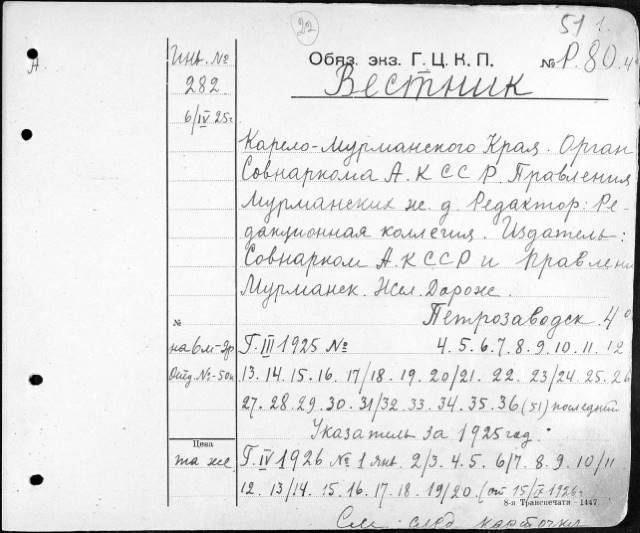 22
51 1.
A
Инв. №
282
6/IV 25г.
Обяз. экз. Г. Ц. К. П.
№ Р.80
Вестник
Карело-Мурманского Края. Орган
Совнаркома А.К ССР. Правления
Мурманских ж. д. Редактор: Ре-
дакционная коллегия. Издатель:
Совнарком А.КССР и Правлени
Мурманск. Жел. Дорож.
Петрозаводск. 4°
№
на 6м-3р
Отд. №-50к
Г. III 1925 № 4. 5. 6. 7. 8. 9. 10. 11. 12
13. 14. 15. 16. 17/18. 19. 20/21. 22. 23/24. 25. 26
27. 28. 29. 30. 31/32. 33. 34. 35. 36 (51) последний
Указатель за 1925 год.
Цена
та же
Г. IV 1926 № 1 янв. 2/3. 4. 5. 6/7. 8. 9. 10/11
12. 13/14. 15. 16. 17. 18. 19/20. (от 15/IX 1926г.
8-я Транспечати - 1447.
См. след. карточки